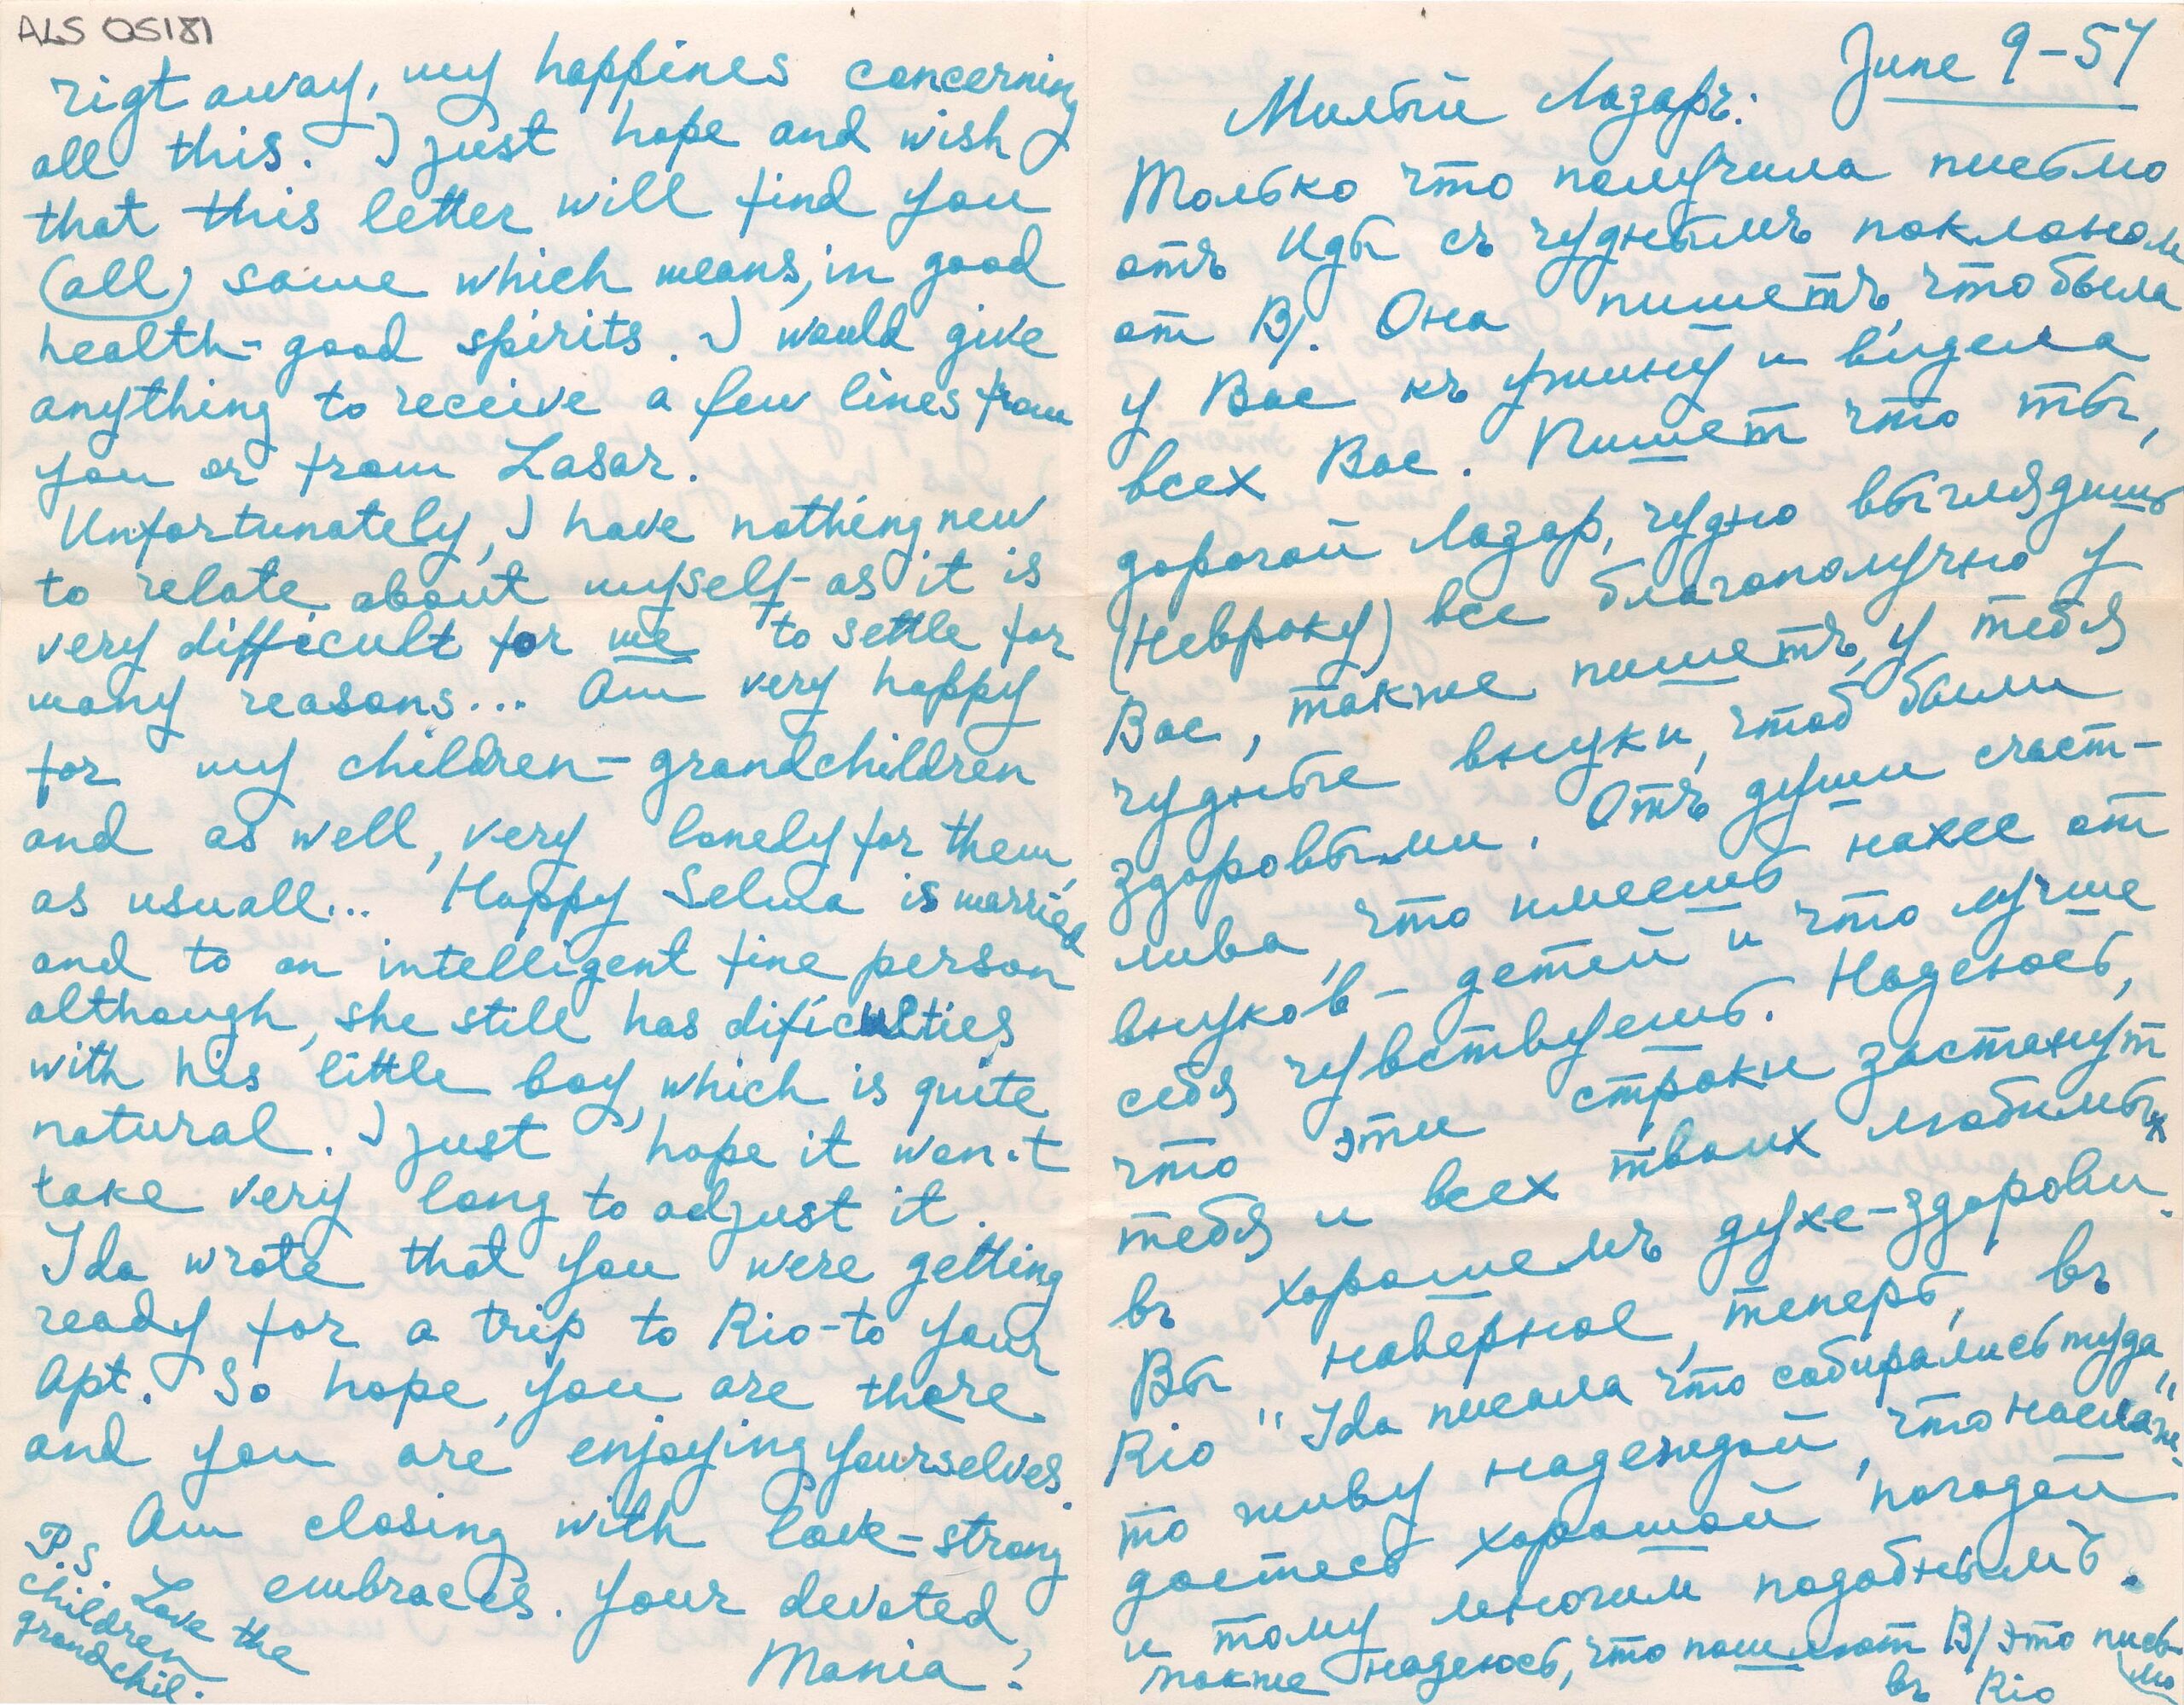 ALS 05181
rigt away, my happines concerning
all this. I just hope and wish
that this letter will find you
(all) same which means, in good
health - good spirits. I would give
anything to receive a few lines from
you or from Lasar.
Unfortunately, I have nothing new
to relate about myself - as it is
very difficult for me to settle for
many reasons... Am very happy
for my children - grandchildren
and as well, very lonely for them,
as usuall... Happy Selma is married
and to an intelligent fine person
although, she still has dificulties
with his little boy, which is quite
natural. I just hope it won't
take very long to adjust it.
Ida wrote that you were getting
ready for a trip to Rio - to your
Apt. So hope, you are there
and you are enjoying yourselves.
Am closing with love - strong
embraces. Your devoted
Mania!
P.S. Love the
children
grandchil.
June 9 - 57
Милый Лазарь:
Только что получила письмо
отъ Иды съ чуднымъ поклоном
от В/. Она пишетъ, что была
у Вас къ ужину и видела
всех Вас. Пишет что ты,
дорогой Лазар, чудно выглядишь
(невроку) все благополучно у
Вас, также пишетъ, у тебя
чудные внуки, чтоб были
здоровыми. Отъ души счаст-
лива, что имеешь нахес от
внуков - детей и что лучше
себя чувствуешь. Надеюсь,
что эти строки застанут
тебя и всех твоих любимых
въ хорошемъ духе - здоровьи.
Вы наверное, теперь, въ
Rio "Ida писала что собирались туда"
то живу надеждой, что наслаж-
даетесь хорошой погодой
и тому многим подобнымъ.
также надеюсь, что пошлют В/ это пись-
(мо
въ Rio